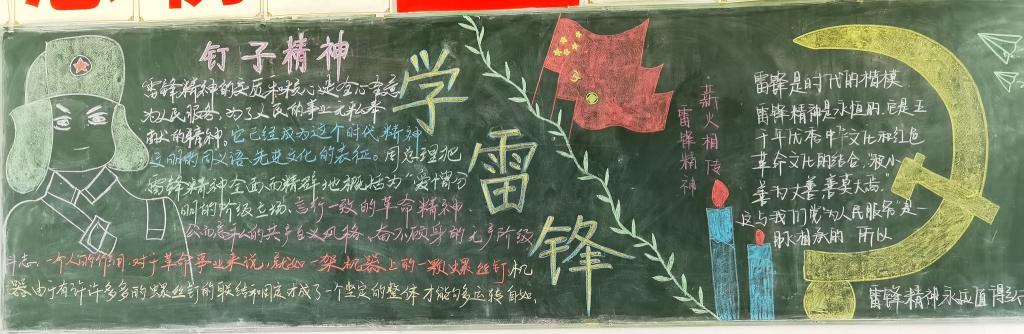 钉子精神
雷锋精神的实质和核心是全心全意
为人民服务,为了人民的事业无私奉
献的精神。它已经成为这个时代精神
文明的同义语、先进文化的表征。周总理把
雷锋精神全面而精辟地概括为“爱憎分
明的阶级立场、言行一致的革命精神
公而忘私的共产主义风格、奋不顾身的无产阶级
斗志。一个人的作用,对于革命事业来说,就如一架机器上的一颗螺丝钉机
器由于有许许多多的螺丝钉的联结和固定才成了一个坚定的整体才能够多运转自如、
学
雷
锋
薪火相传
雷锋精神
雷锋是时代的楷模
雷锋精神是永恒的,它是五
千年优秀中华文化和红色
革命文化的结合。
这与我们党“为人民服务”是一
脉相承的 所以
雷锋精神永远值得